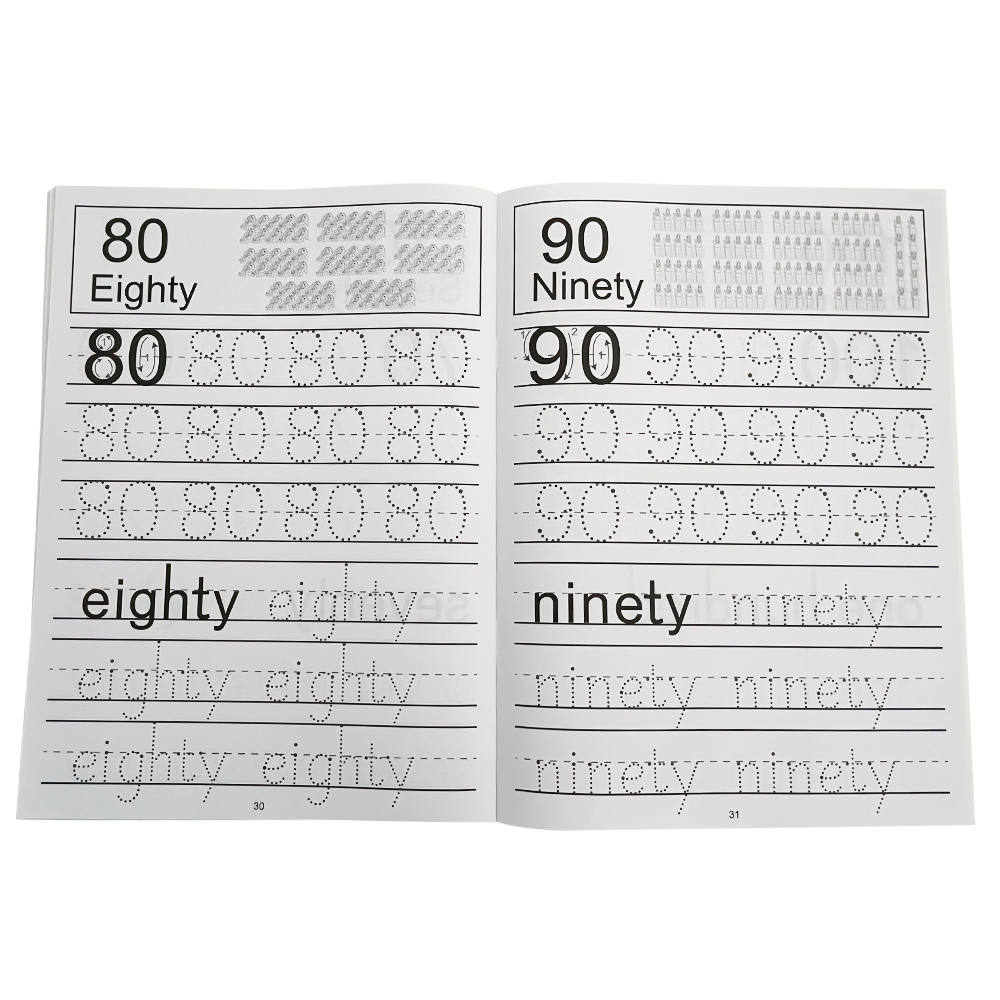 80
Eighty
80 80 80 80
80 80 80 80
80 80 80 80
eighty eighty
eighty eighty
eighty eighty
30
90
Ninety
90 90 90 90
90 90 90 90
90 90 90 90
ninety ninety
ninety ninety
ninety ninety
31